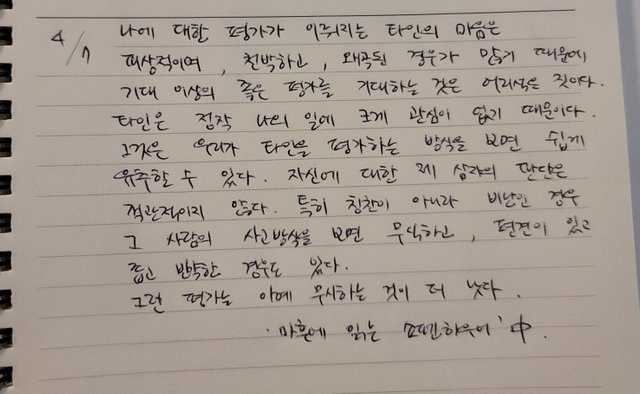 4/7
나에 대한 평가가 이뤄지는 타인의 마음은
피상적이며, 천박하고, 왜곡된 경우가 많기 때문에
기대 이상의 좋은 평가를 기대하는 것은 어리석은 짓이다.
타인은 정작 나의 일에 크게 관심이 없기 때문이다.
그것은 우리가 타인을 평가하는 방식을 보면 쉽게
유추할 수 있다. 자신에 대한 제 삼자의 판단은
객관적이지 않다. 특히 칭찬이 아니라 비난인 경우
그 사람의 사고방식을 보면 무식하고, 편견이 있고
좁고 빈약한 경우도 있다.
그런 평가는 아예 무시하는 것이 더 낫다.
'마흔에 읽는 쇼펜하우어' 中.